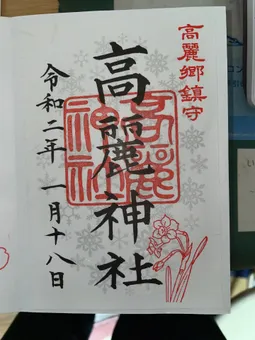 高麗郷鎮守
高麗神社
高麗神社
令和二年 一月十八日